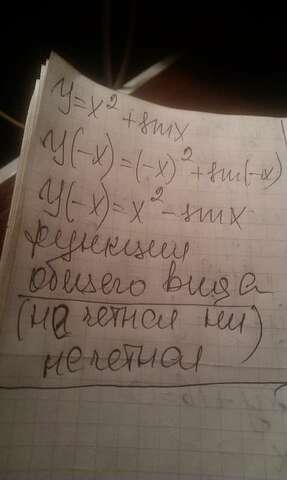 y=x² + sin x
y(-x) = (-x)² + sin(-x)
y(-x) = x² - sin x
функции
общего вида
(не четная ни)
нечетная